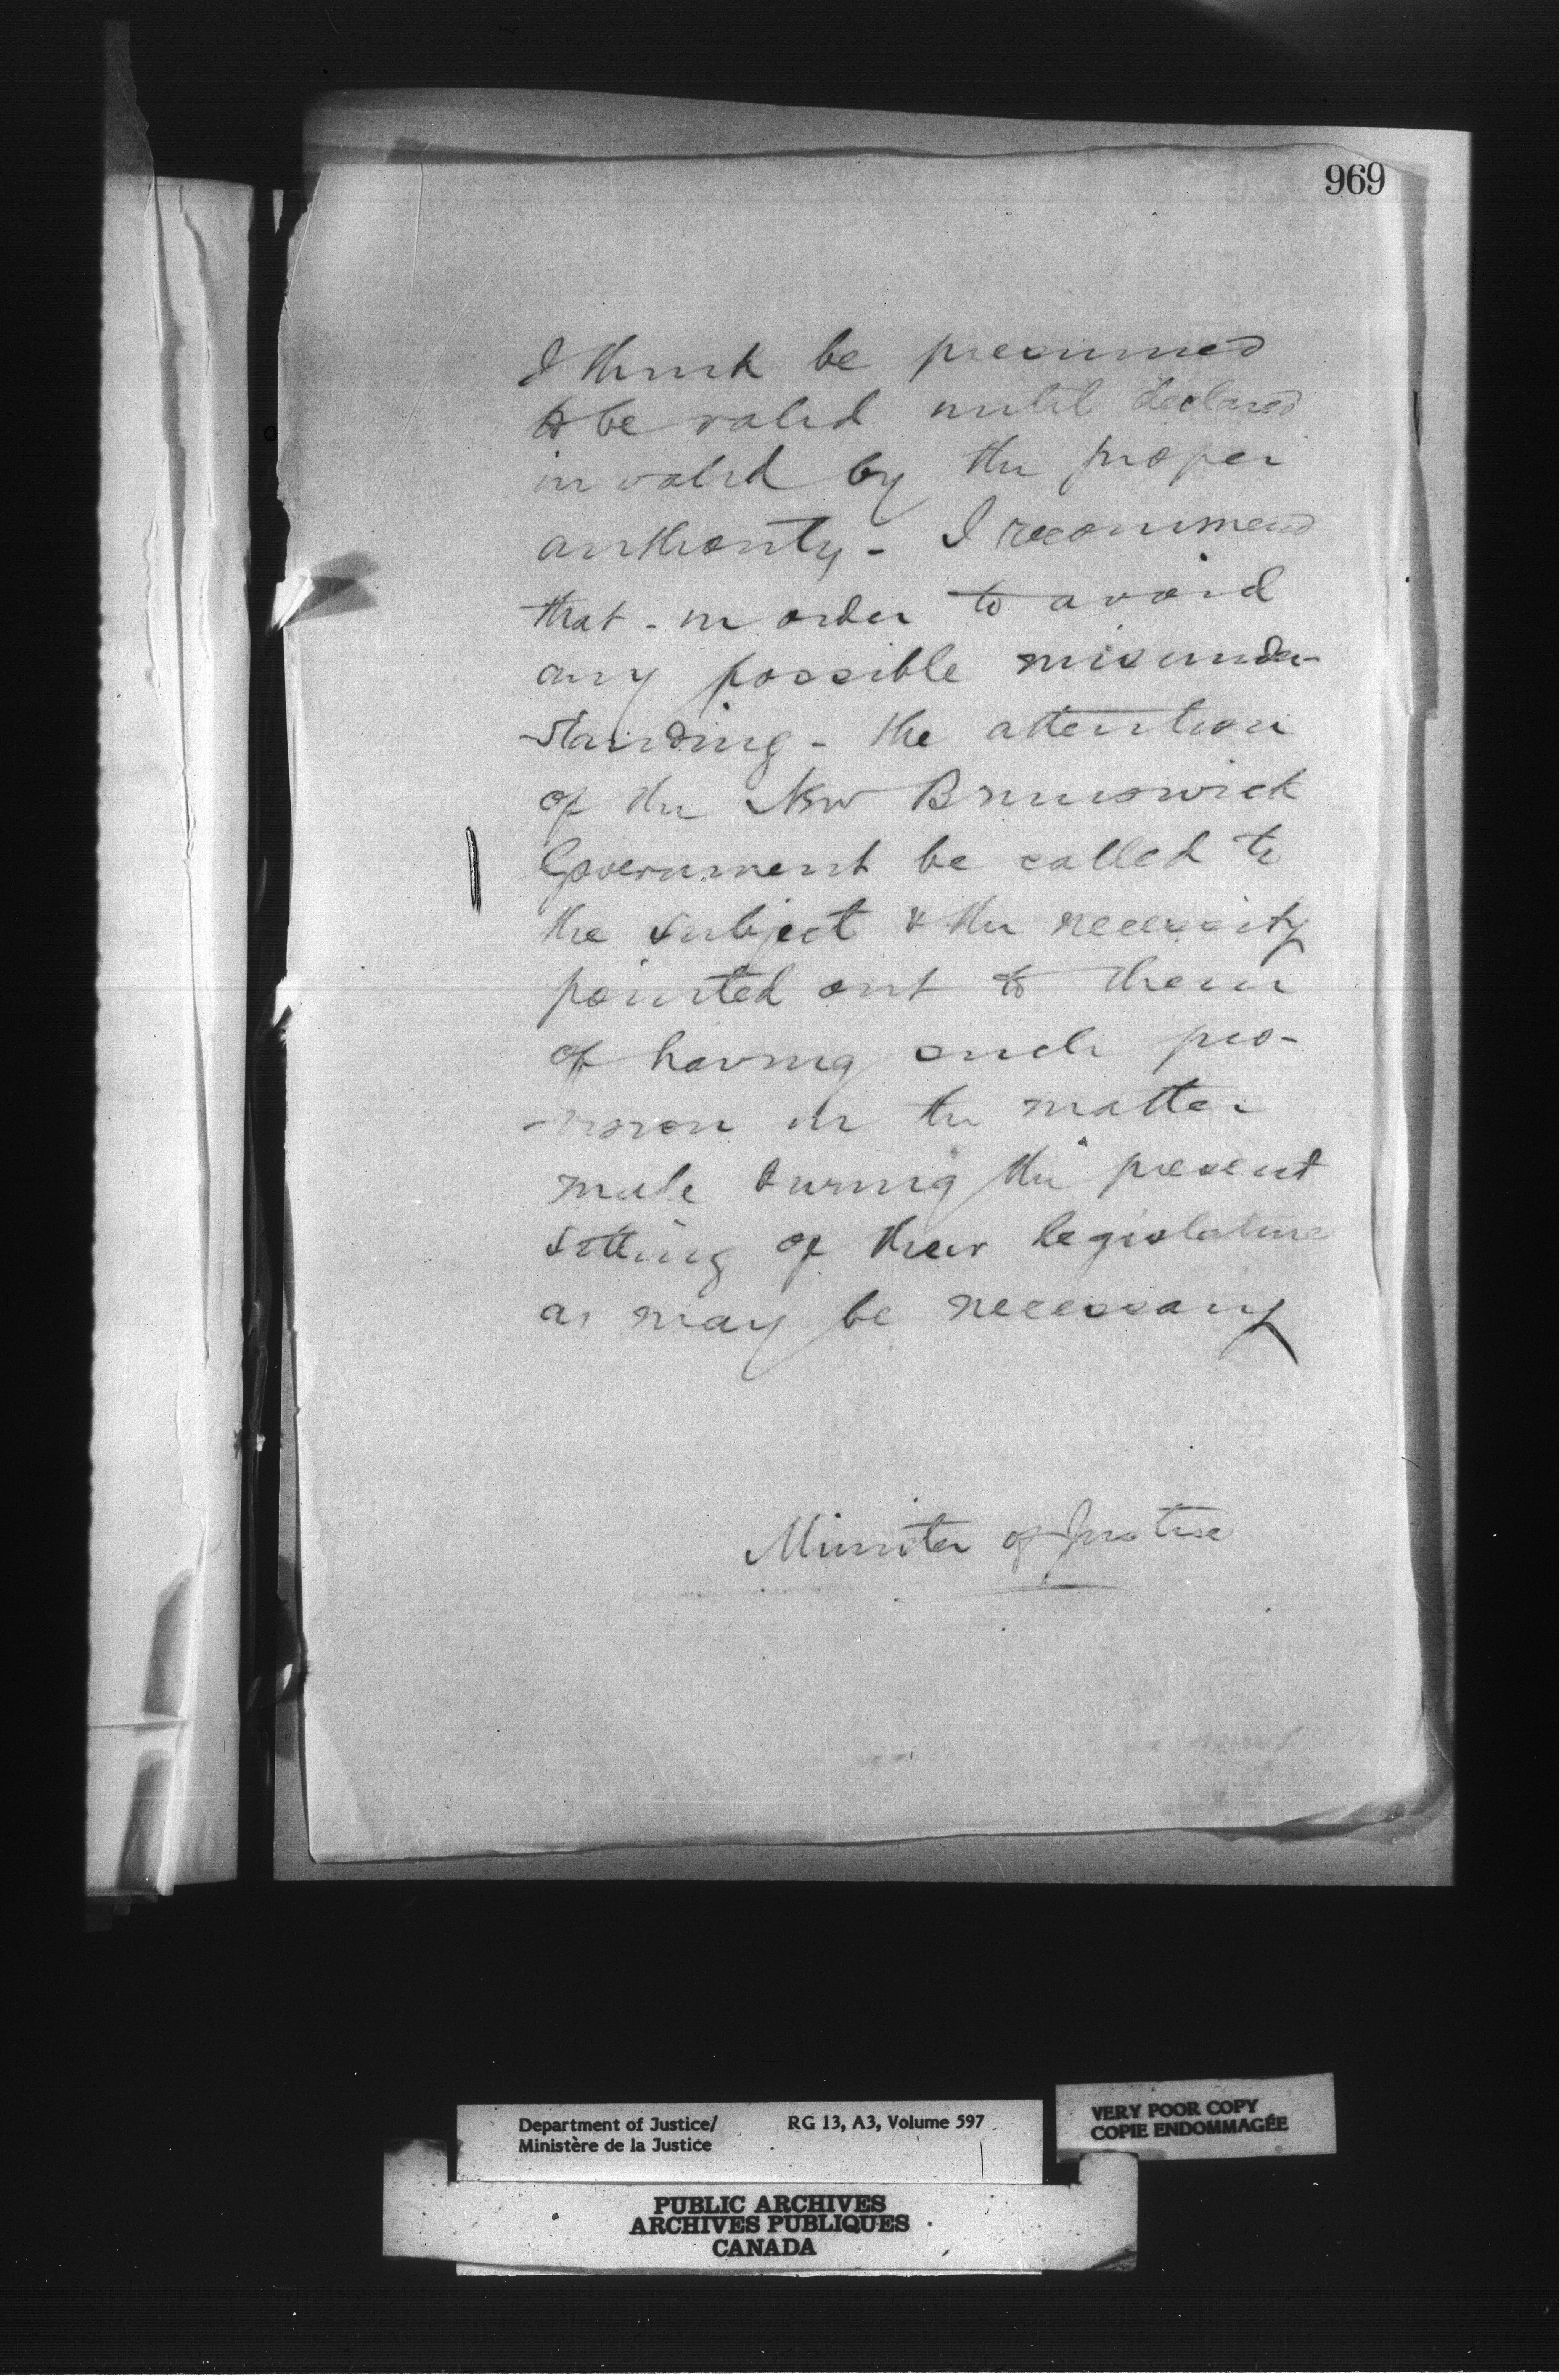 969
I think be presumed
to be valid until declared
invalid by the proper
authority - I recommend
that - in order to avoid
any possible misunder-
-standing - the attention
of the New Brunswick
Government be called to
the subject & the necessity
pointed out to them
of having such pro-
-vision in the matter
made during the present
sitting of their legislature
as may be necessary
Minister of Justice
Department of Justice/ RG 13, A3, Volume 597
Ministère de la Justice
VERY POOR COPY
COPIE ENDOMMAGÉE
PUBLIC ARCHIVES
ARCHIVES PUBLIQUES
CANADA